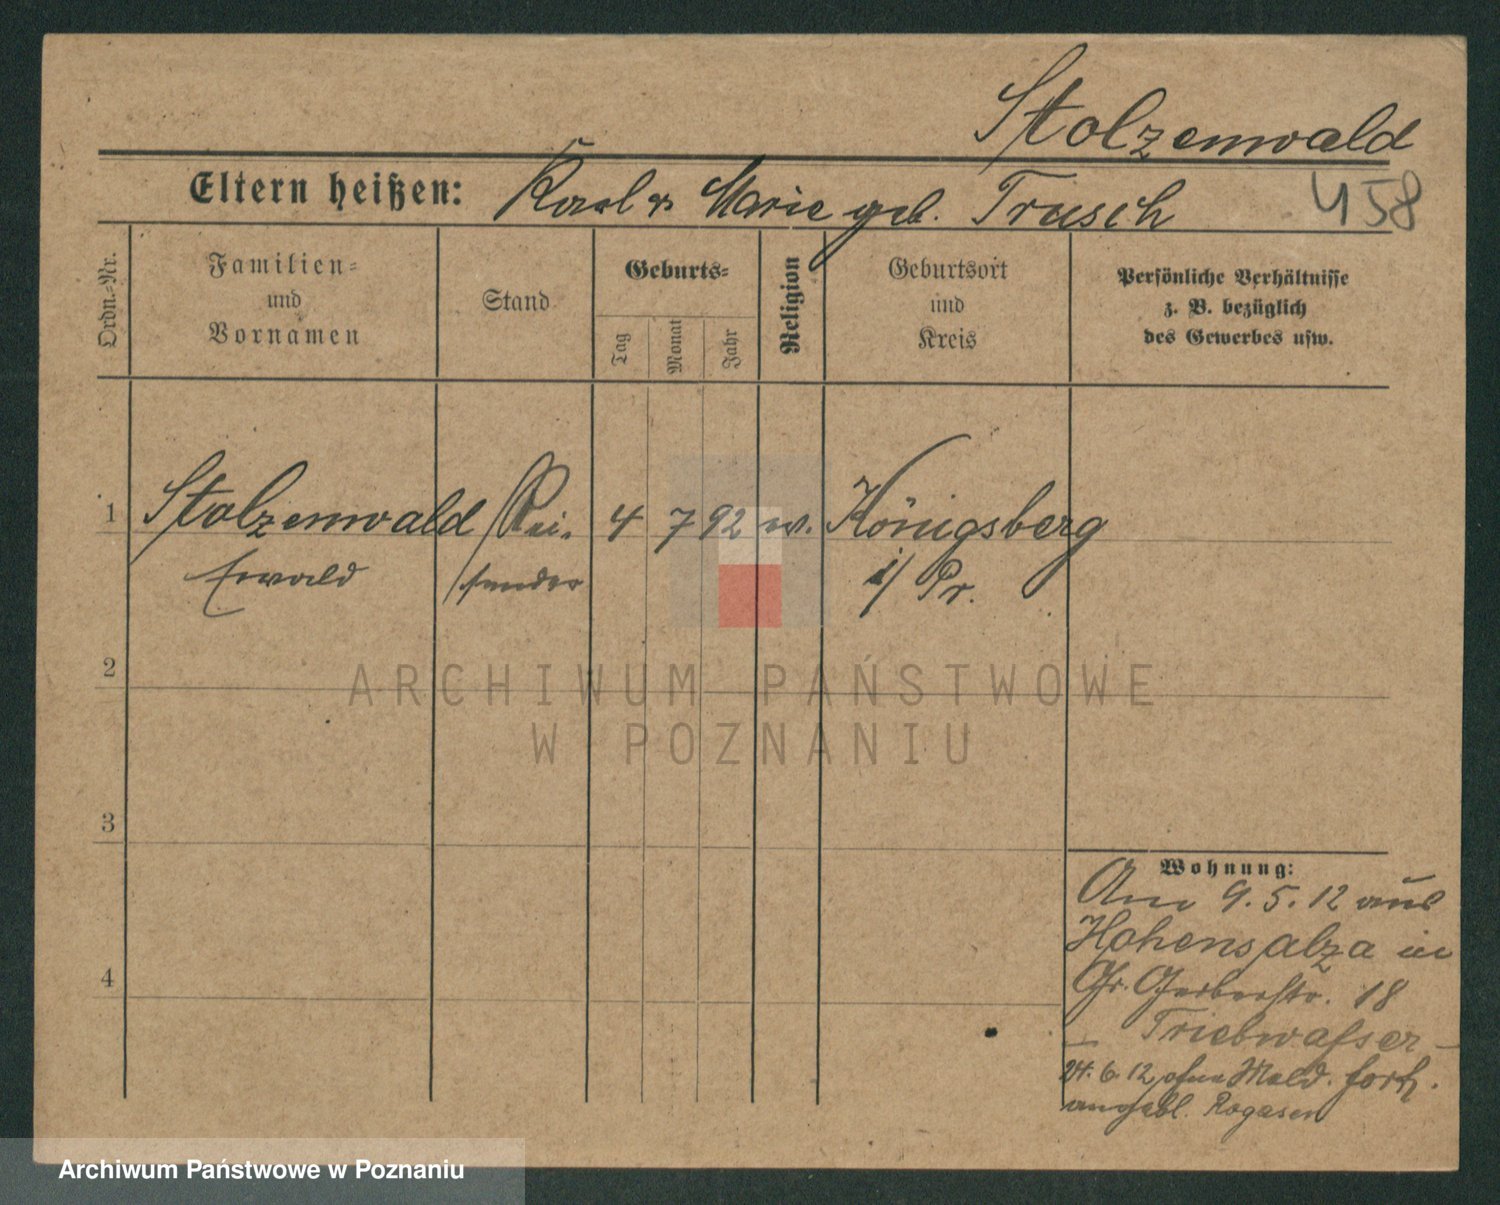 Stolzenwald
Eltern heißen: Karl u. Marie geb. Trusch
458
Ordn.-Nr.
Familien-
und
Vornamen
Stand
Geburts-
Tag
Monat
Jahr
Religion
Geburtsort
und
Kreis
Persönliche Verhältnisse
z. B. bezüglich
des Gewerbes usw.
1 Stolzenwald Rei- 4 7 92 ev. Königsberg
Ewald sender i/ Pr.
2
3
4
Wohnung:
Am 9.5.12 aus
Hohensalza in
Gr. Gerberstr. 18
– Triebwasser –
24.6.12 ohne Meld. fort.
angebl. Rogasen
ARCHIWUM PAŃSTWOWE
W POZNANIU
Archiwum Państwowe w Poznaniu